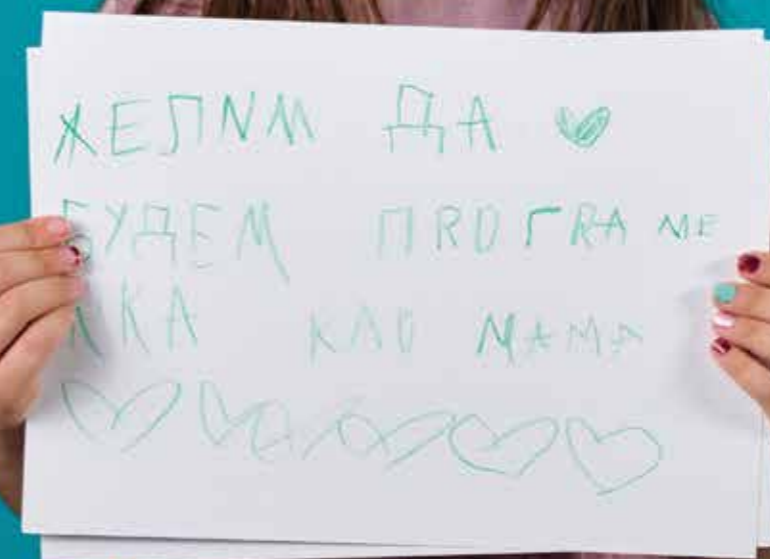 ЖЕЛИМ ДА
БУДЕМ ПRОГRА МЕ
РКА КАО МАМА